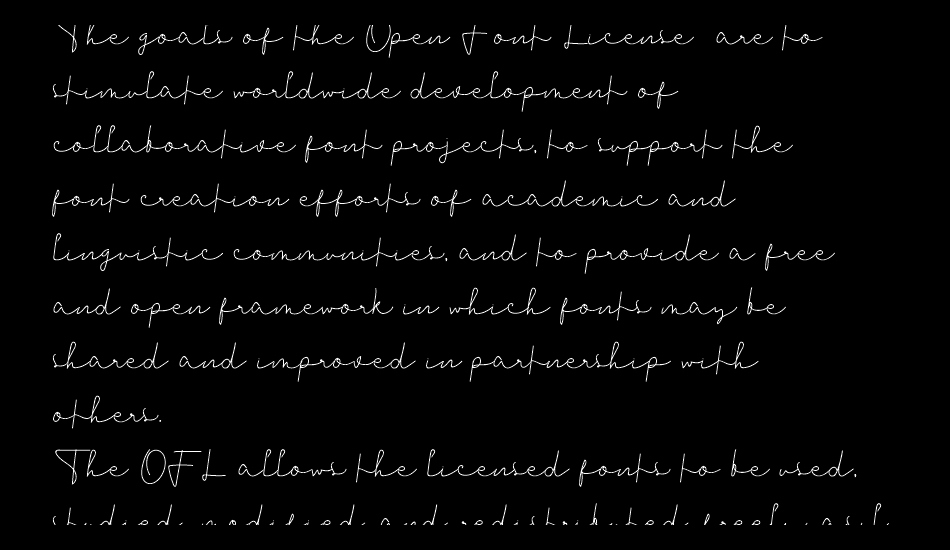 The goals of the Open Font License are to
stimulate worldwide development of
collaborative font projects, to support the
font creation efforts of academic and
linguistic communities, and to provide a free
and open framework in which fonts may be
shared and improved in partnership with
others.
The OFL allows the licensed fonts to be used,
studied, modified and redistributed freely as l